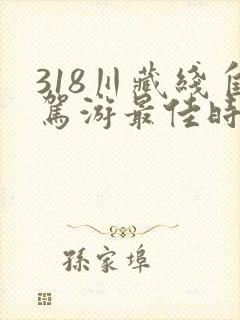 318川藏线自
驾游最佳时
孙家埠